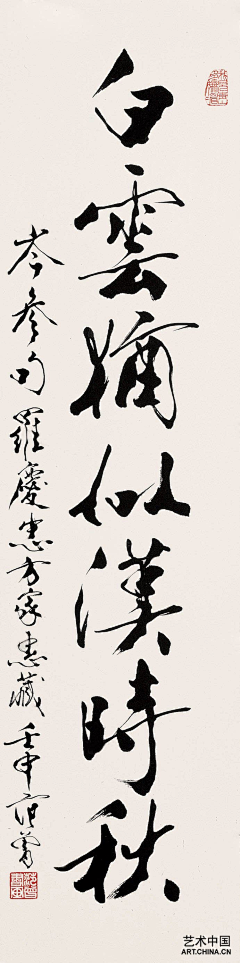 白雲猶似漢時秋
岑參句 羅慶忠方家惠藏 壬申 范曾
艺术中国
ART.CHINA.CN